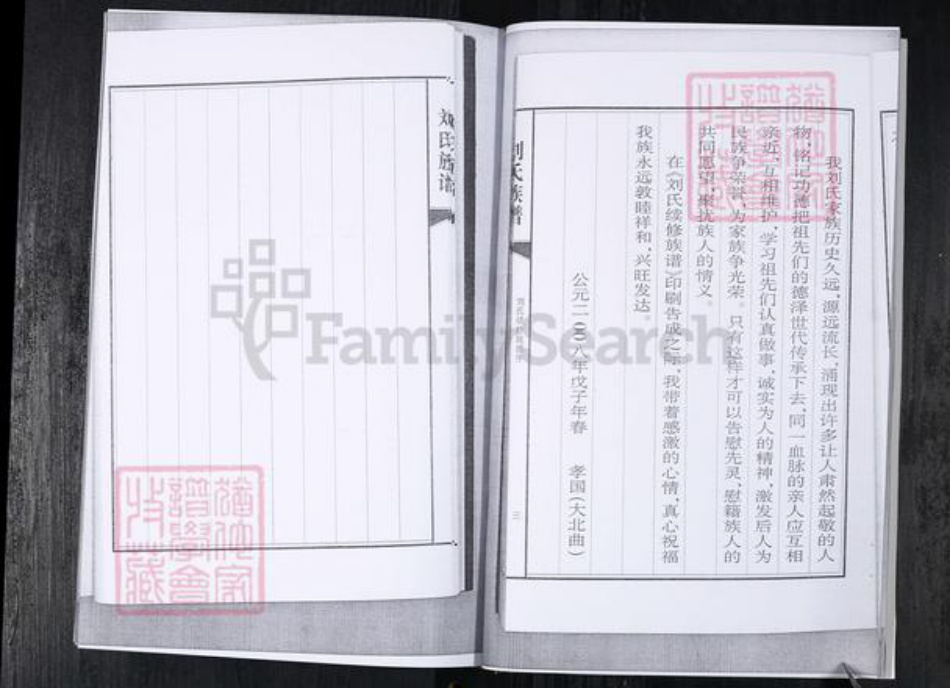 我刘氏家族历史久远，源远流长，涌现出许多让人肃然起敬的人
物，铭记功德把祖先们的德泽世代传承下去，同一血脉的亲人应互相
亲近、互相维护，学习祖先们认真做事，诚实为人的精神，激发后人为
民族争荣誉，为家族争光荣。只有这样才可以告慰先灵、慰籍族人的
共同愿望，聚扰族人的情义。
在《刘氏续修族谱》印刷告成之际，我带着感激的心情，真心祝福
我族永远敦睦祥和，兴旺发达。
公元二〇〇八年戊子年春 孝国（大北曲）
刘氏族谱
三
刘氏族谱
FamilySearch